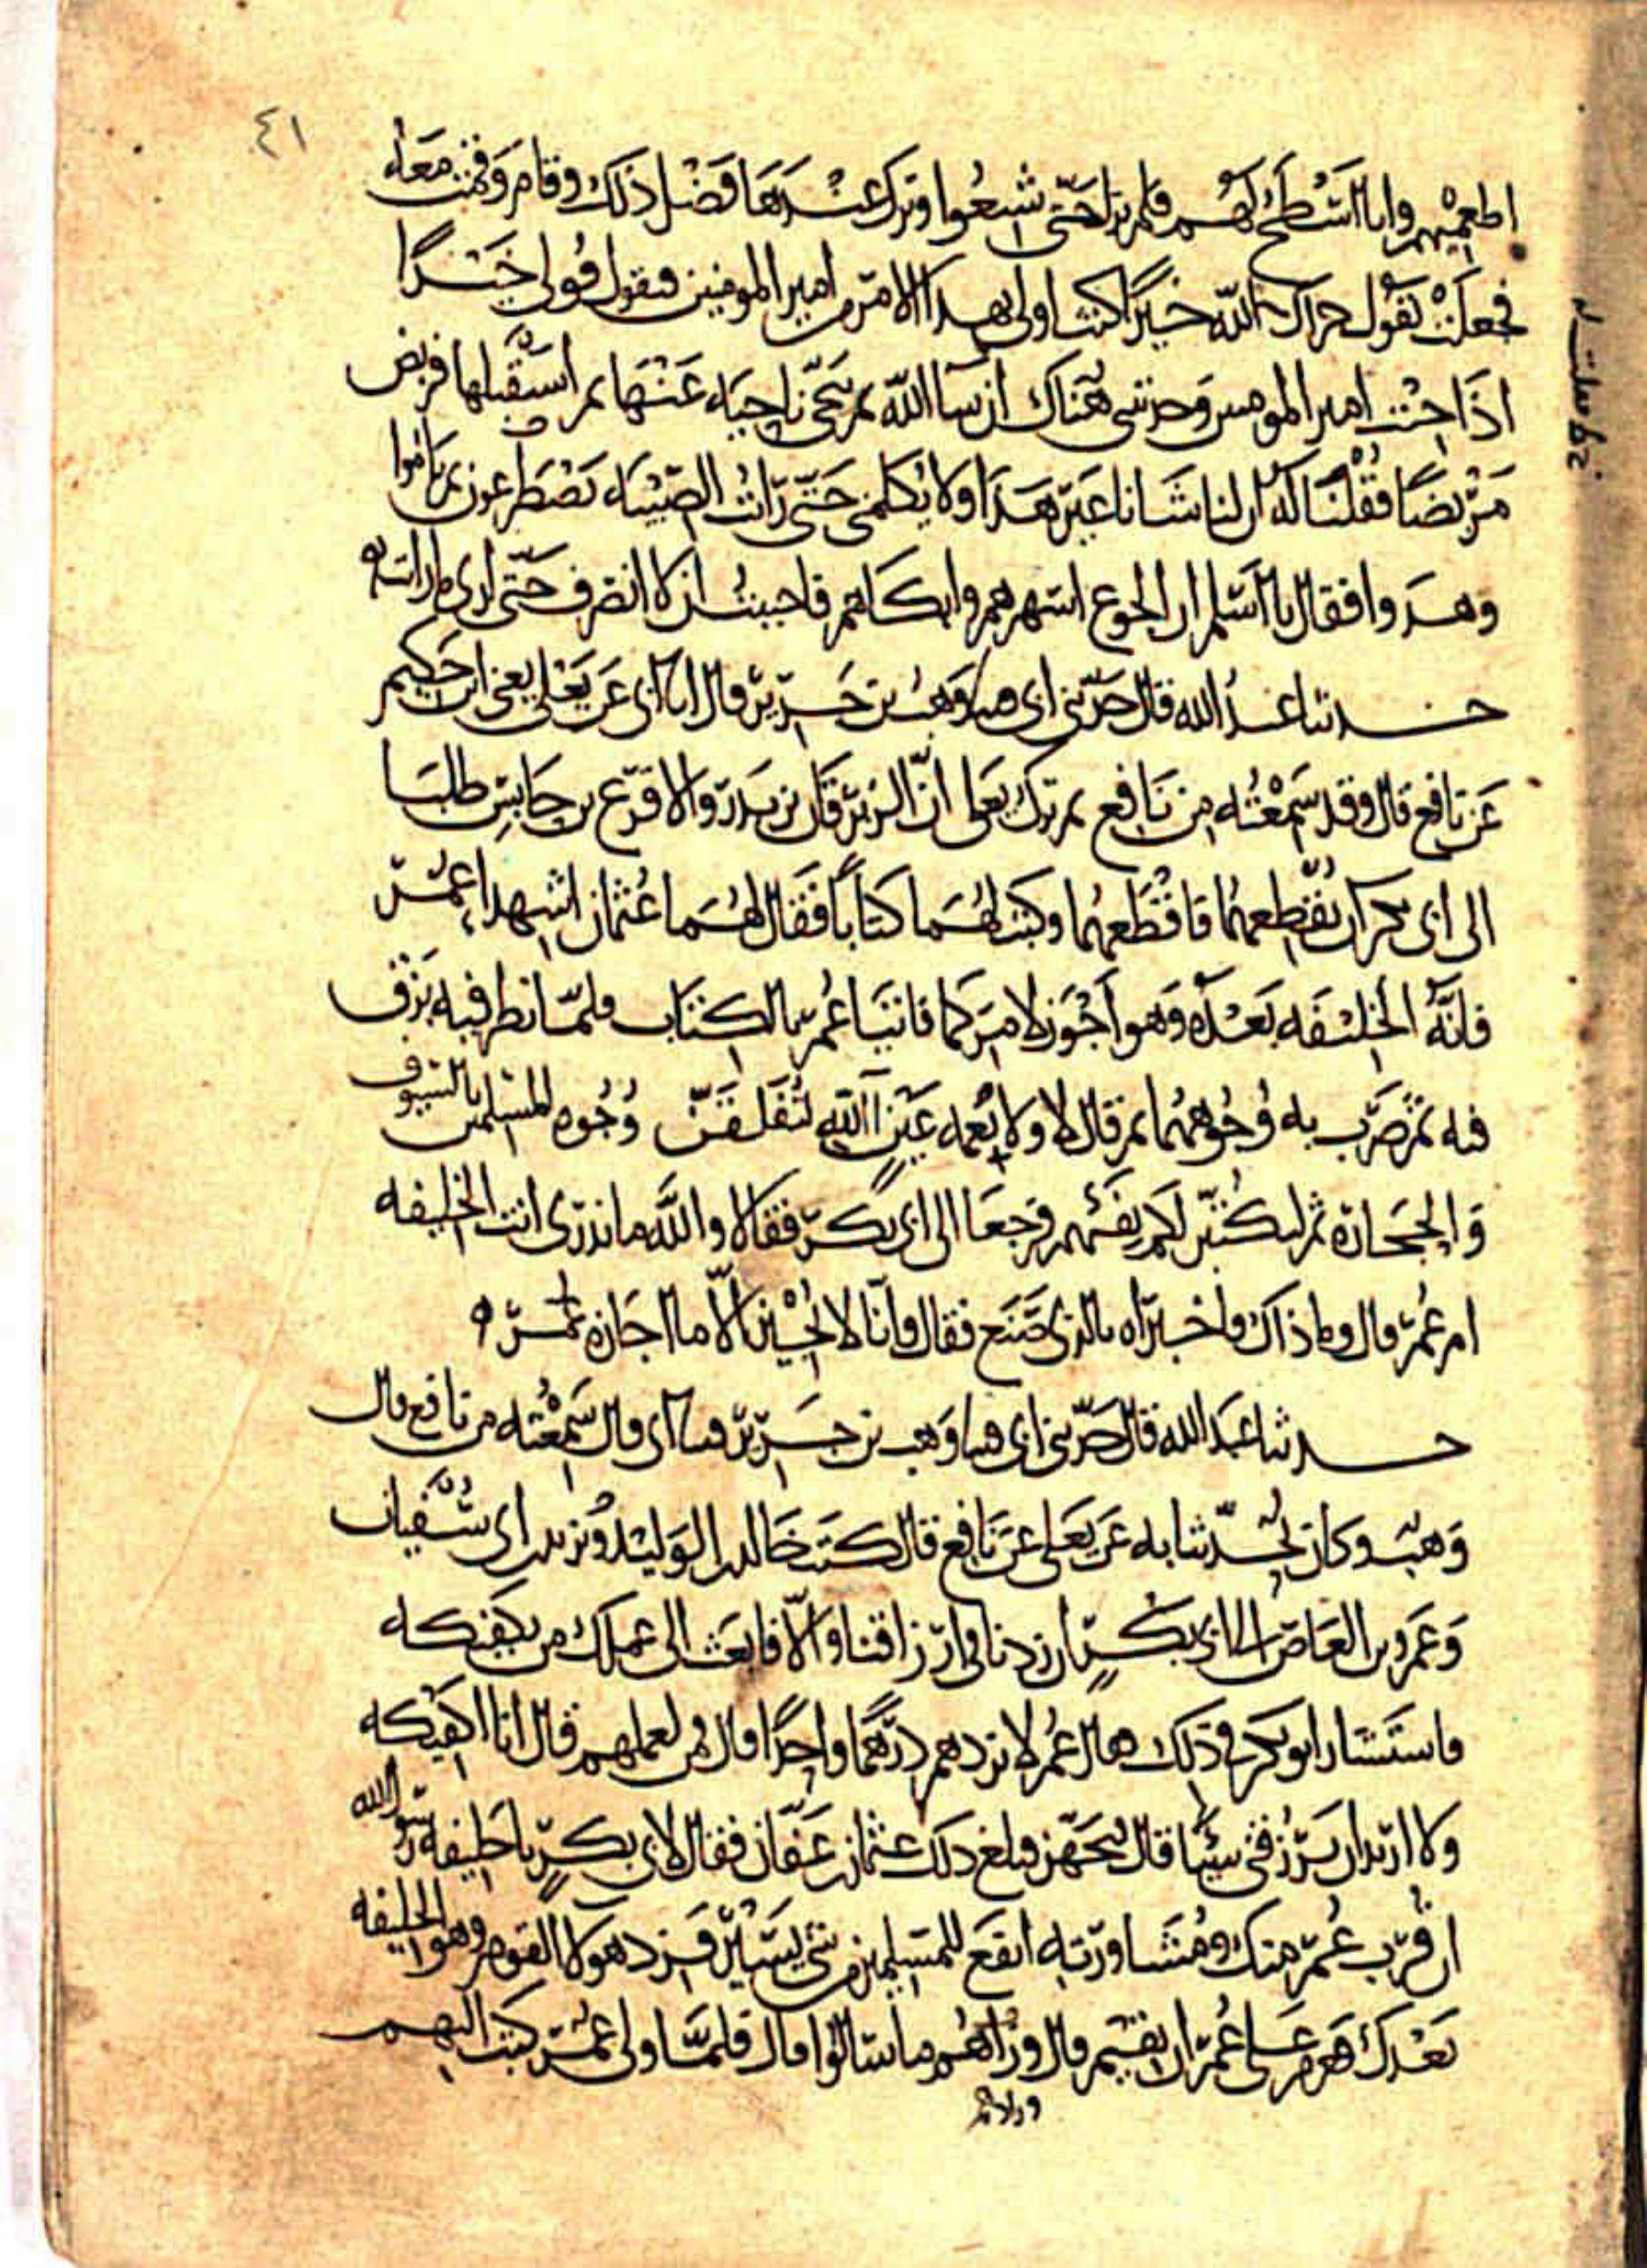 ٤١
اطعميهم وانا اسطح لهم فلم يزل حتى شبعوا وترك عندها فضل ذلك وقام وقمت معه
فجعلت تقول جزاك الله خيرا كنت اولى بهذا الامر من امير المومنين فيقول قولي خيرا
اذا جئت امير المومنين وجدتني هناك ان شا الله ثم تنحى ناحيه عنها ثم استقبلها فربض
مربضا فقلنا له ان لنا شانا غير هذا ولا يكلمني حتى رأت الصبيه تصطرعون ثم ناموا
وهدوا فقال يا اسلم ان الجوع اسهرهم وابكاهم فاحببت ان لا انصرف حتى ارى ما رأيت
حدثنا عبد الله قال حدثني ابي وهب بن جرير قال انا ابي عن يعلى يعني ابن حكيم
عن نافع قال وقد سمعته من نافع ثم ترك يعلى ان الزبرقان بن بدر والاقرع بن حابس طلبا
الى ابي بكر ان يقطعهما فاقطعهما وكتب لهما كتابا فقال لهما عثمان اشهدا عمر
فانه الخليفه بعده وهو اجوز لامركما فاتيا عمر بالكتاب فلما نظر فيه بزق
فيه ثم ضرب به وجوههما ثم قال لا ولا نعمه عين آالله لتفلقن وجوه المسلمين بالسيوف
والحجارة ثم ليكتبن لكم بفيهم فرجعا الى ابي بكر فقالا والله ما ندري انت الخليفه
ام عمر قال وما ذاك فاخبراه بالذي صنع فقال وانا لا نجيز الا ما اجازه عمر ه
حدثنا عبد الله قال حدثني ابي وهب بن جرير ابي قال سمعته من نافع قال
وهب وكان يحدثنا به عن يعلى عن نافع قال كتب خالد بن الوليد ويزيد بن ابي سفيان
وعمرو بن العاص الى ابي بكر ان زدنا في ارزاقنا والا فابعث الى عملك من يكفيكه
فاستشار ابو بكر في ذلك فقال عمر لا تزدهم درهما واحدا قال فمن لعملهم قال انا اكفيكه
ولا اريد ان ترزقني شيئا قال فتجهز فبلغ ذلك عثمان بن عفان فقال لابي بكر يا خليفه رسول الله
ان قرب عمر منك ومشاورته انفع للمسلمين من شي يسير فزد هولا القوم وهو الخليفه
بعدك فعزم على عمر ان يقيم قال وزادهم ما سالوا قال فلما ولي عمر كتب اليهم